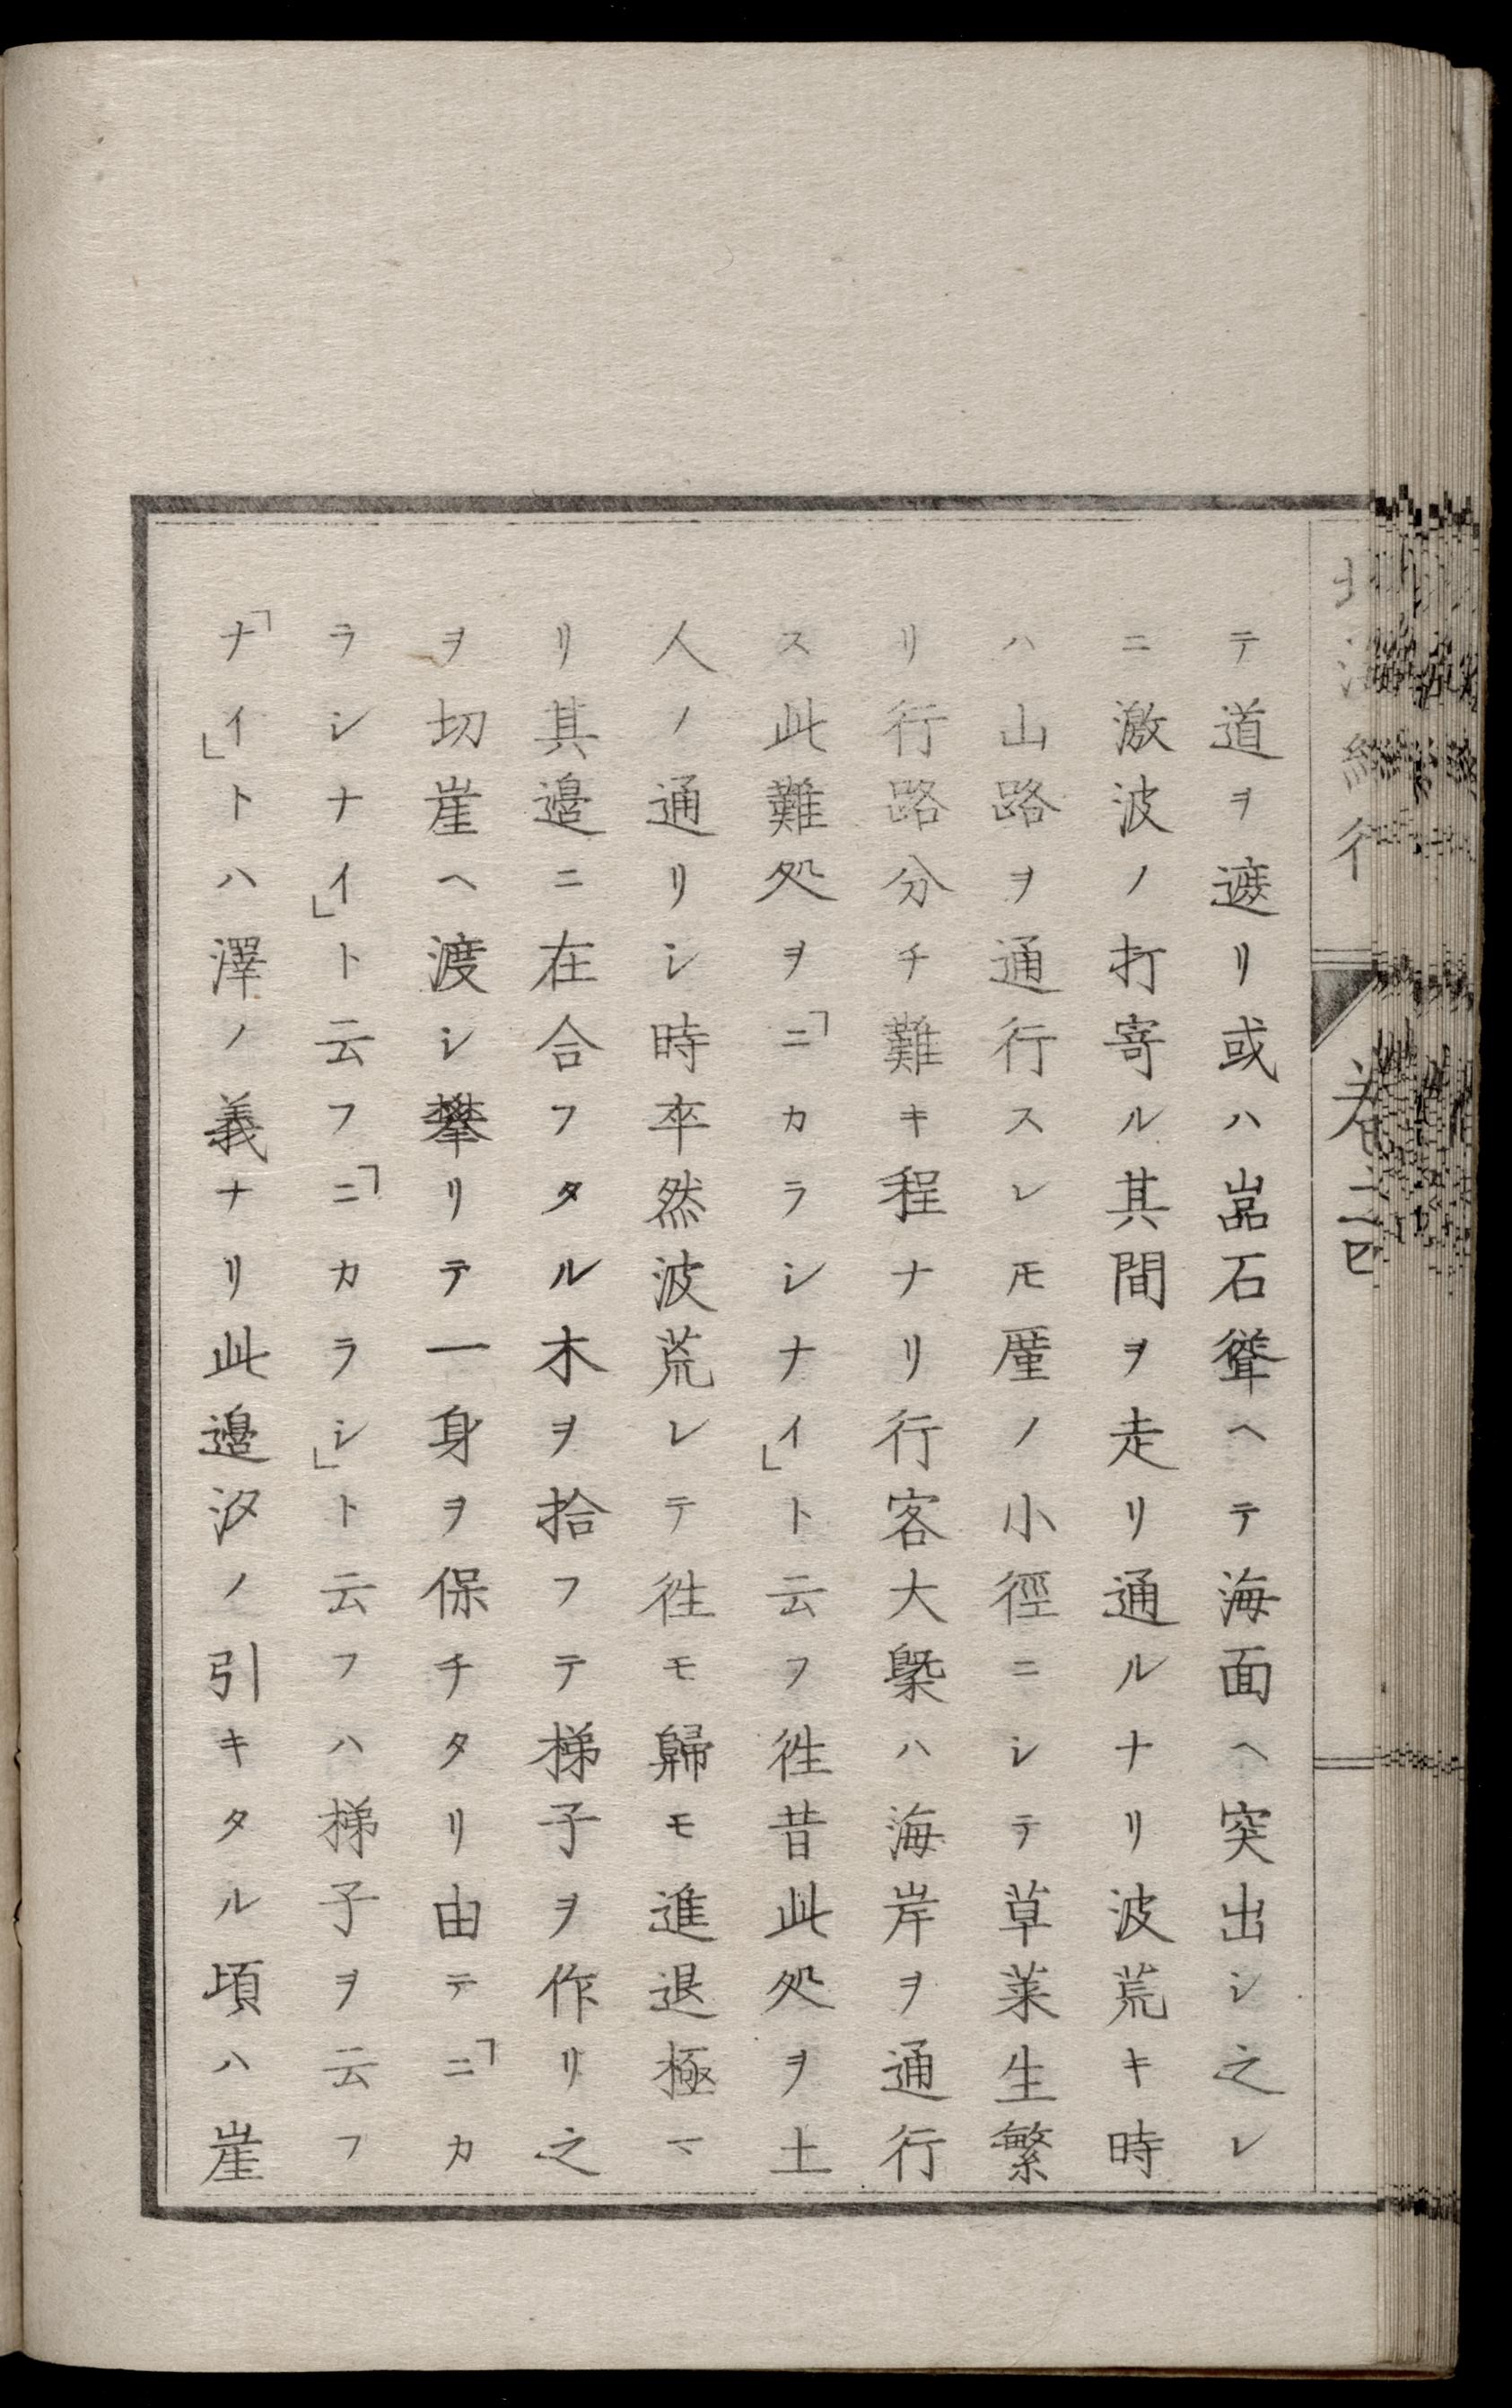 テ道ヲ遮リ或ハ嵓石聳ヘテ海面ヘ突出シ之レ
ニ激波ノ打寄ル其間ヲ走リ通ルナリ波荒キ時
ハ山路ヲ通行スレ𪜈厓ノ小徑ニシテ草莱生繁
リ行路分チ難キ程ナリ行客大槩ハ海岸ヲ通行
ス此難処ヲ「ニカラシナイ」ト云フ徃昔此処ヲ土
人ノ通リシ時卒然波荒レテ徃モ歸モ進退極マ
リ其邉ニ在合フタル木ヲ拾フテ梯子ヲ作リ之
ヲ切崖ヘ渡シ攀リテ一身ヲ保チタリ由テ「ニカ
ラシナイ」ト云フ「ニカラシ」ト云フハ梯子ヲ云フ
「ナイ」トハ澤ノ義ナリ此邉汐ノ引キタル頃ハ崖
卷之四